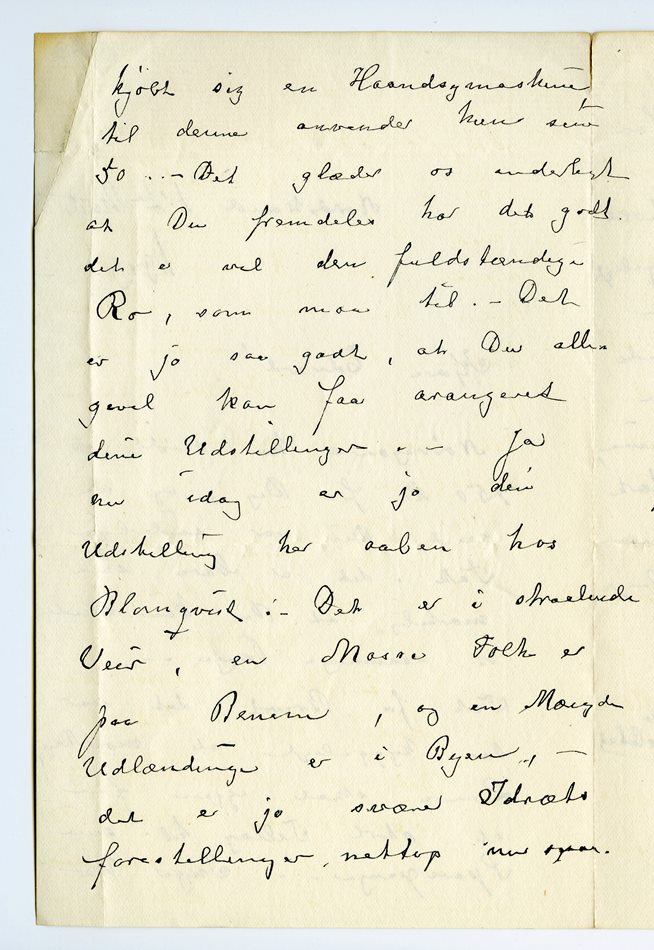 kjøbt sig en Haandsymaskine,
til denne anvender hun sine
50 .. – Det glæder os inderligt
at Du fremdeles har det godt.
det er vel den fuldstændige
Ro, som maa til. – Det
er jo saa godt, at Du alli-
gevel kan faa arangeret
dine Udstillinger. – Ja
nu idag er jo din
Udstilling her aaben hos
Blomqvist :– Det er i straalende
Veir, en Masse Folk er
paa Benene, og en Mængde
Udlændinge er i Byen, –
det er jo svære Idræts
forestillinger, nettop nu